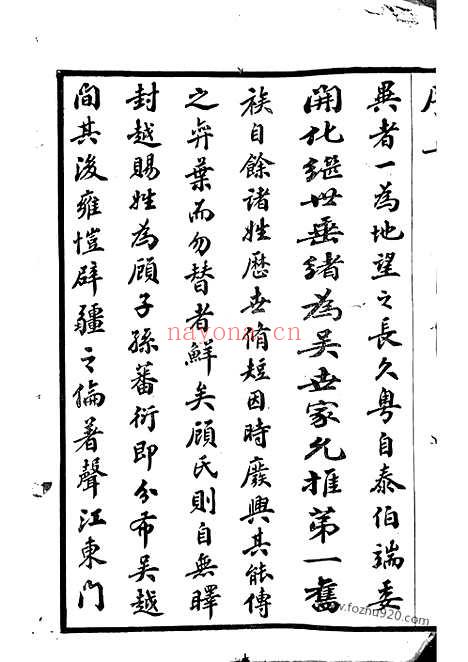 異者一為地望之長久粵自泰伯端委
開化繼世垂緒為吳世家允推第一舊
族自餘諸姓歷世脩短因時廢興其能傳
之弈葉而勿替者鮮矣顧氏則自無曎
封越賜姓為顧子孫蕃衍即分布吳越
間其後雍愷辟疆之倫著聲江東門
nayona.cn
www.fozhu920.com